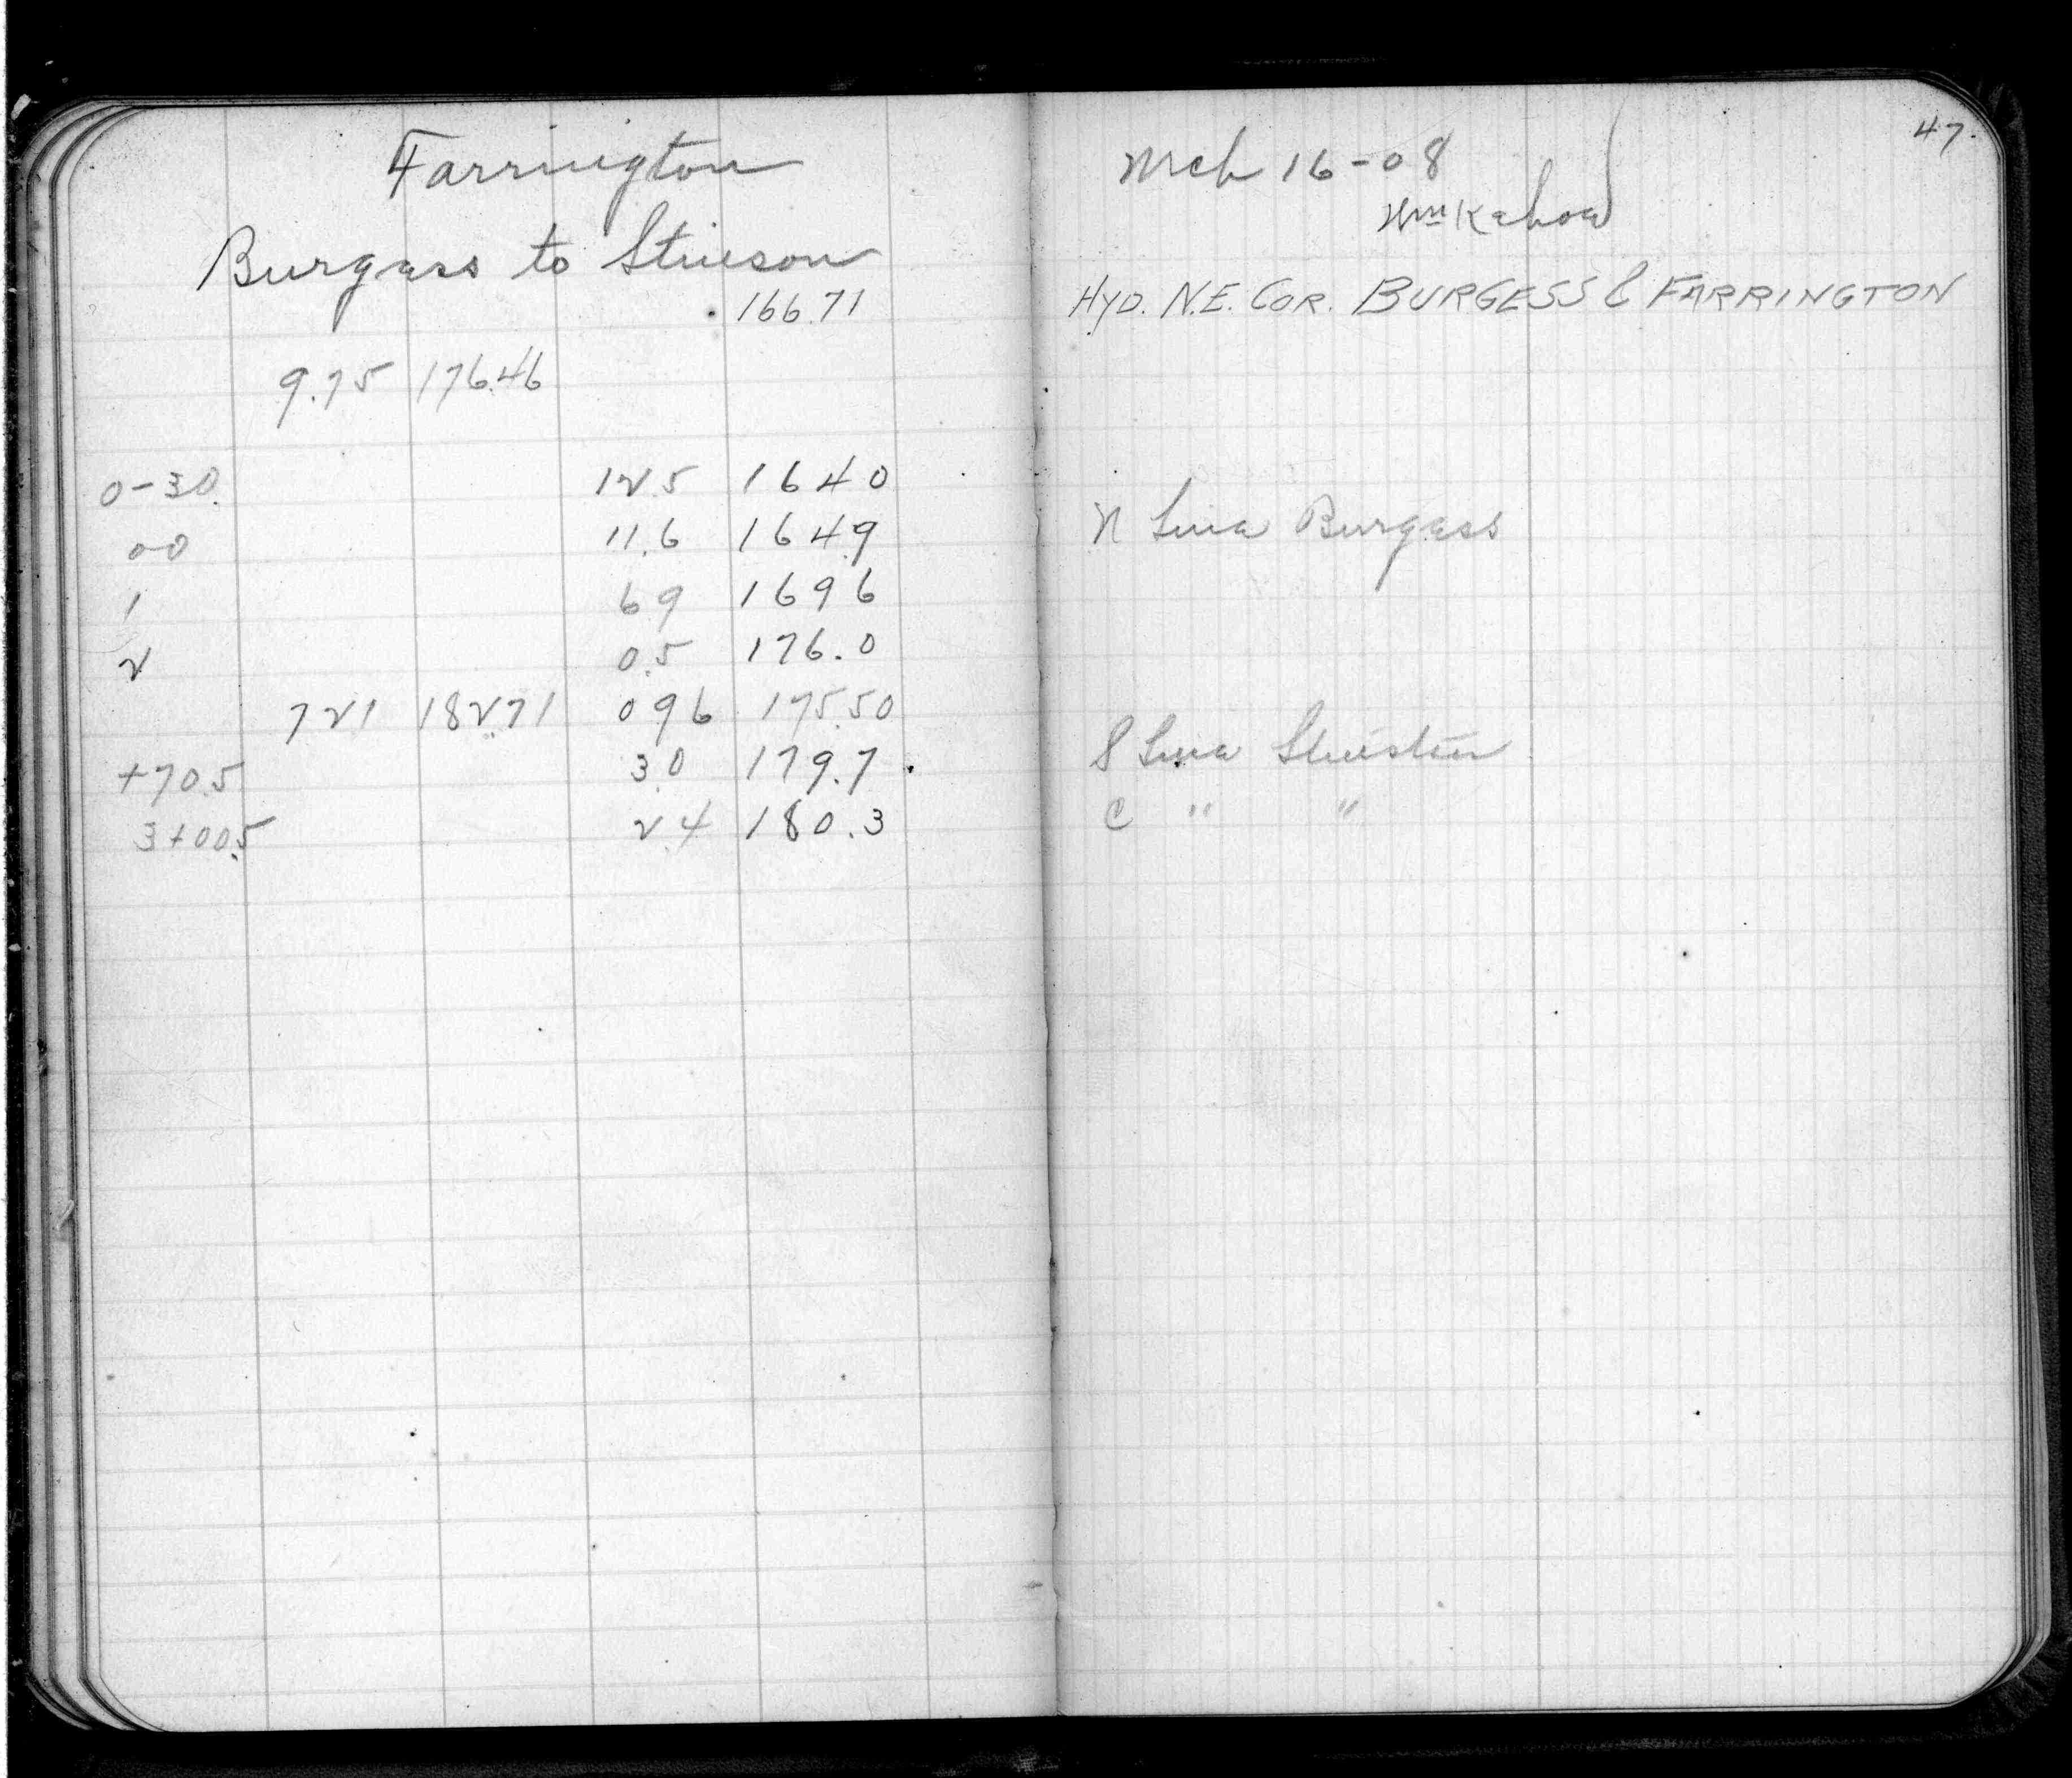 Farrington
Burgess to Stinson
166.71
9.75 176.46
0-30 12.5 164.0
00 11.6 164.9
1 6.9 169.6
2 0.5 176.0
7.21 182.71 0.96 175.50
+70.5 3.0 179.7
3+00.5 2.4 180.3
47.
Mch 16-08
Wm
HYD. N.E. COR. BURGESS & FARRINGTON
N Line Burgess
S Line Stinson
C " "